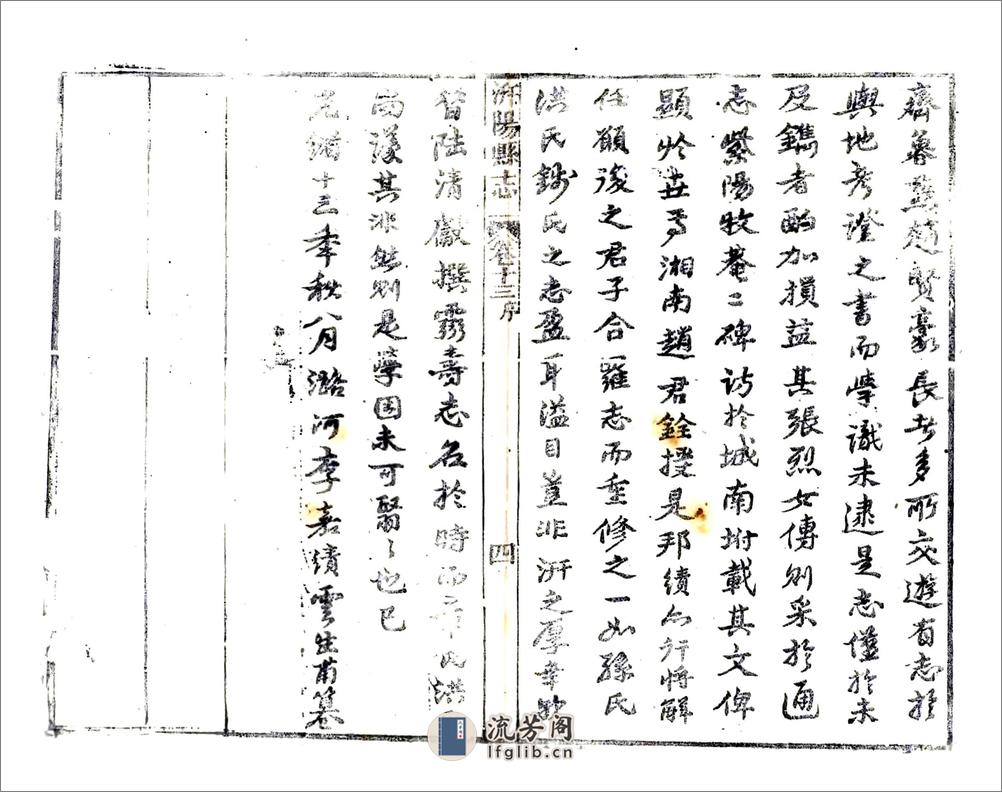 齊魯燕趙賢豪長者多所交遊有志於
輿地考證之書而學識未逮是志僅於未
及鐫者酌加損益其張烈女傳則采於通
志紫陽牧菴二碑訪於城南坿載其文俾
顯於世焉湘南趙君銓授是邦績亦行將解
任願後之君子合羅志而重修之一如孫氏
洪氏錢氏之志盈耳溢目豈非汧之厚幸歟
汧陽縣志
卷十三序
四
昔陸清獻撰靈壽志名於時而氏洪
尚議其非然則是學固未可翳翳也已
光緒十三年秋八月潞河李嘉績雲生甫纂
流芳阁
lfglib.cn